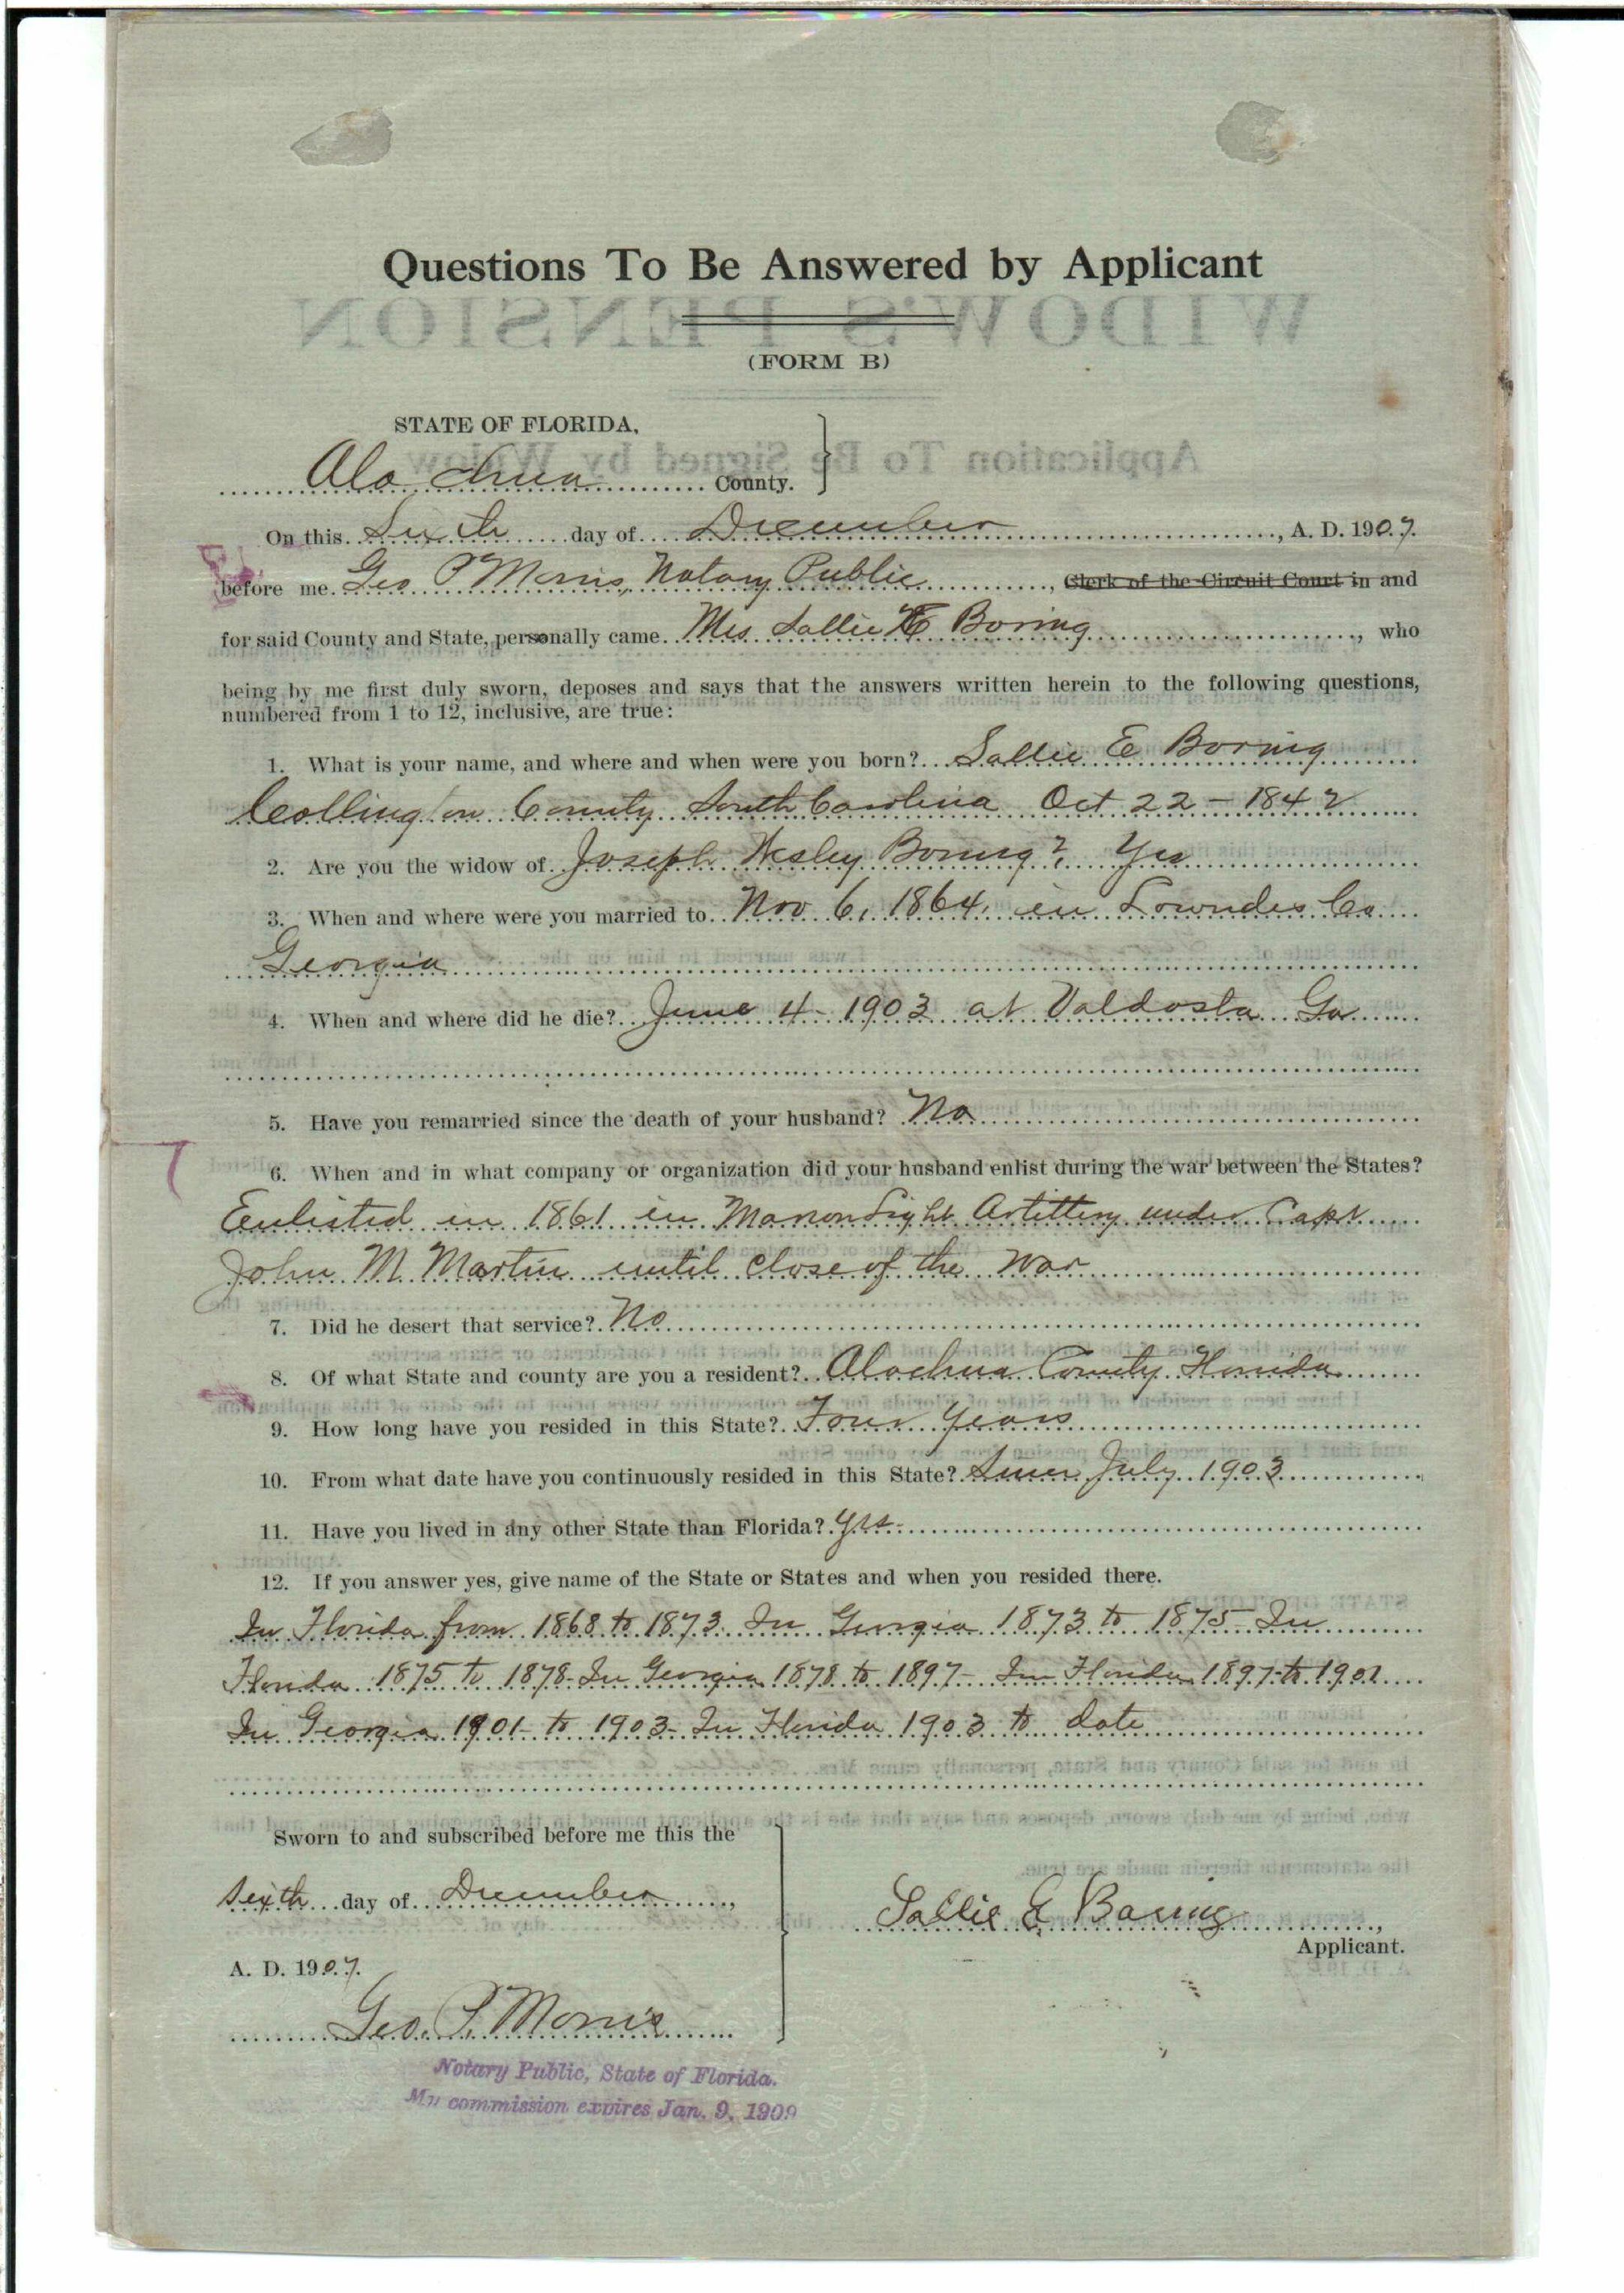 Questions To Be Answered by Applicant
(FORM B)
STATE OF FLORIDA,
Alachua County.
On this Sixth day of December, A. D. 1907.
before me Geo P Morris, Notary Public, Clerk of the Circuit Court in and
for said County and State, personally came Mrs Sallie E Boring, who
being by me first duly sworn, deposes and says that the answers written herein to the following questions,
numbered from 1 to 12, inclusive, are true:
1. What is your name, and where and when were you born? Sallie E Boring
Collington County South Carolina Oct 22 - 1842
2. Are you the widow of Joseph Wesley Boring? Yes
3. When and where were you married to Nov 6, 1864, in Lowndes Co
Georgia
4. When and where did he die? June 4 - 1903 at Valdosta Ga
5. Have you remarried since the death of your husband? No
6. When and in what company or organization did your husband enlist during the war between the States?
Enlisted in 1861 in Marion Light Artillery under Capt
John M Martin until close of the war
7. Did he desert that service? No
8. Of what State and county are you a resident? Alachua County Florida
9. How long have you resided in this State? Four Years
10. From what date have you continuously resided in this State? Since July 1903
11. Have you lived in any other State than Florida? Yes
12. If you answer yes, give name of the State or States and when you resided there.
In Florida from 1868 to 1873. In Georgia 1873 to 1875 - In
Florida 1875 to 1878 - In Georgia 1878 to 1897 - In Florida 1897 to 1901
In Georgia 1901 - to 1903 - In Florida 1903 to date
Sworn to and subscribed before me this the
sixth day of December,
A. D. 1907.
Geo. P. Morris
Notary Public, State of Florida.
My commission expires Jan. 9, 1909
Sallie E Boring,
Applicant.